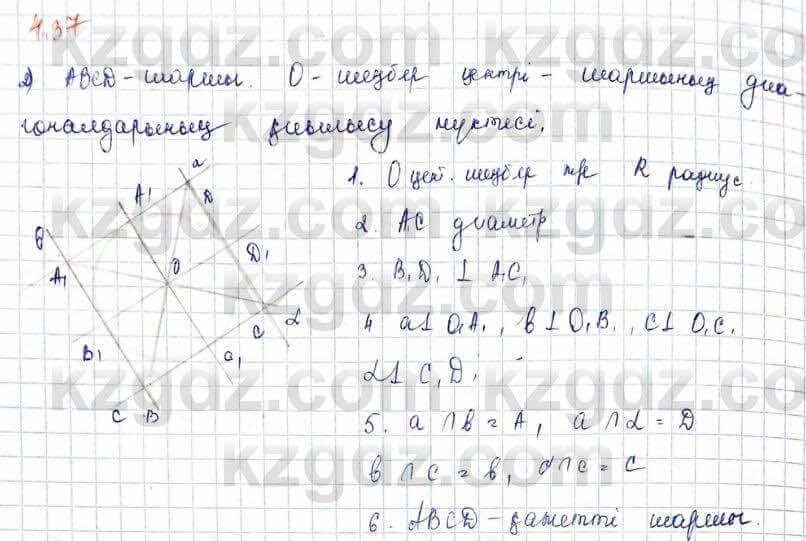 4.37
2) ABCD - шаршы. O - шеңбер центрі - шаршының диа-
гоналдарының қиылысу нүктесі.
1. O цент. шеңбер және R радиус.
2. AC диаметр
3. B₁D₁ ⊥ A₁C₁
4 a⊥O₁A₁, b⊥O₁B₁, c⊥O₁C₁
d⊥C₁D₁
5. a∩b=A, a∩d=D
b∩c=b, d∩c=C
6. ABCD - қажетті шаршы.
a
A₁
D
B
A₁
O
D₁
C
d
B₁
a₁
C
B
kzgdz.com